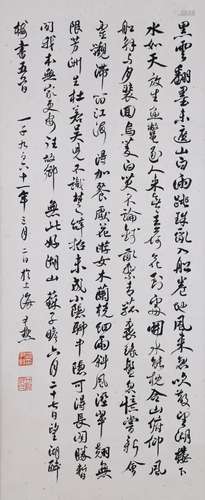 黑雲翻墨未遮山白雨跳珠亂入船卷地風來忽吹散望湖樓下
水如天放生魚鱉逐人來無主荷花到處開水枕能令山俯仰風
船解與月裴回烏菱白芡不論錢亂繫青菰裹綠盤忽憶嘗新會
靈觀滯留江海得加餐獻花游女木蘭橈細雨斜風濕翠翹無
限芳洲生杜若吳兒不識楚辭招未成小隱聊中隱可得長閑勝暫
閑我本無家更安往故鄉無此好湖山蘇子瞻六月二十七日望湖醉
樓書五首
一千九百六十一年三月二日於上海尹默